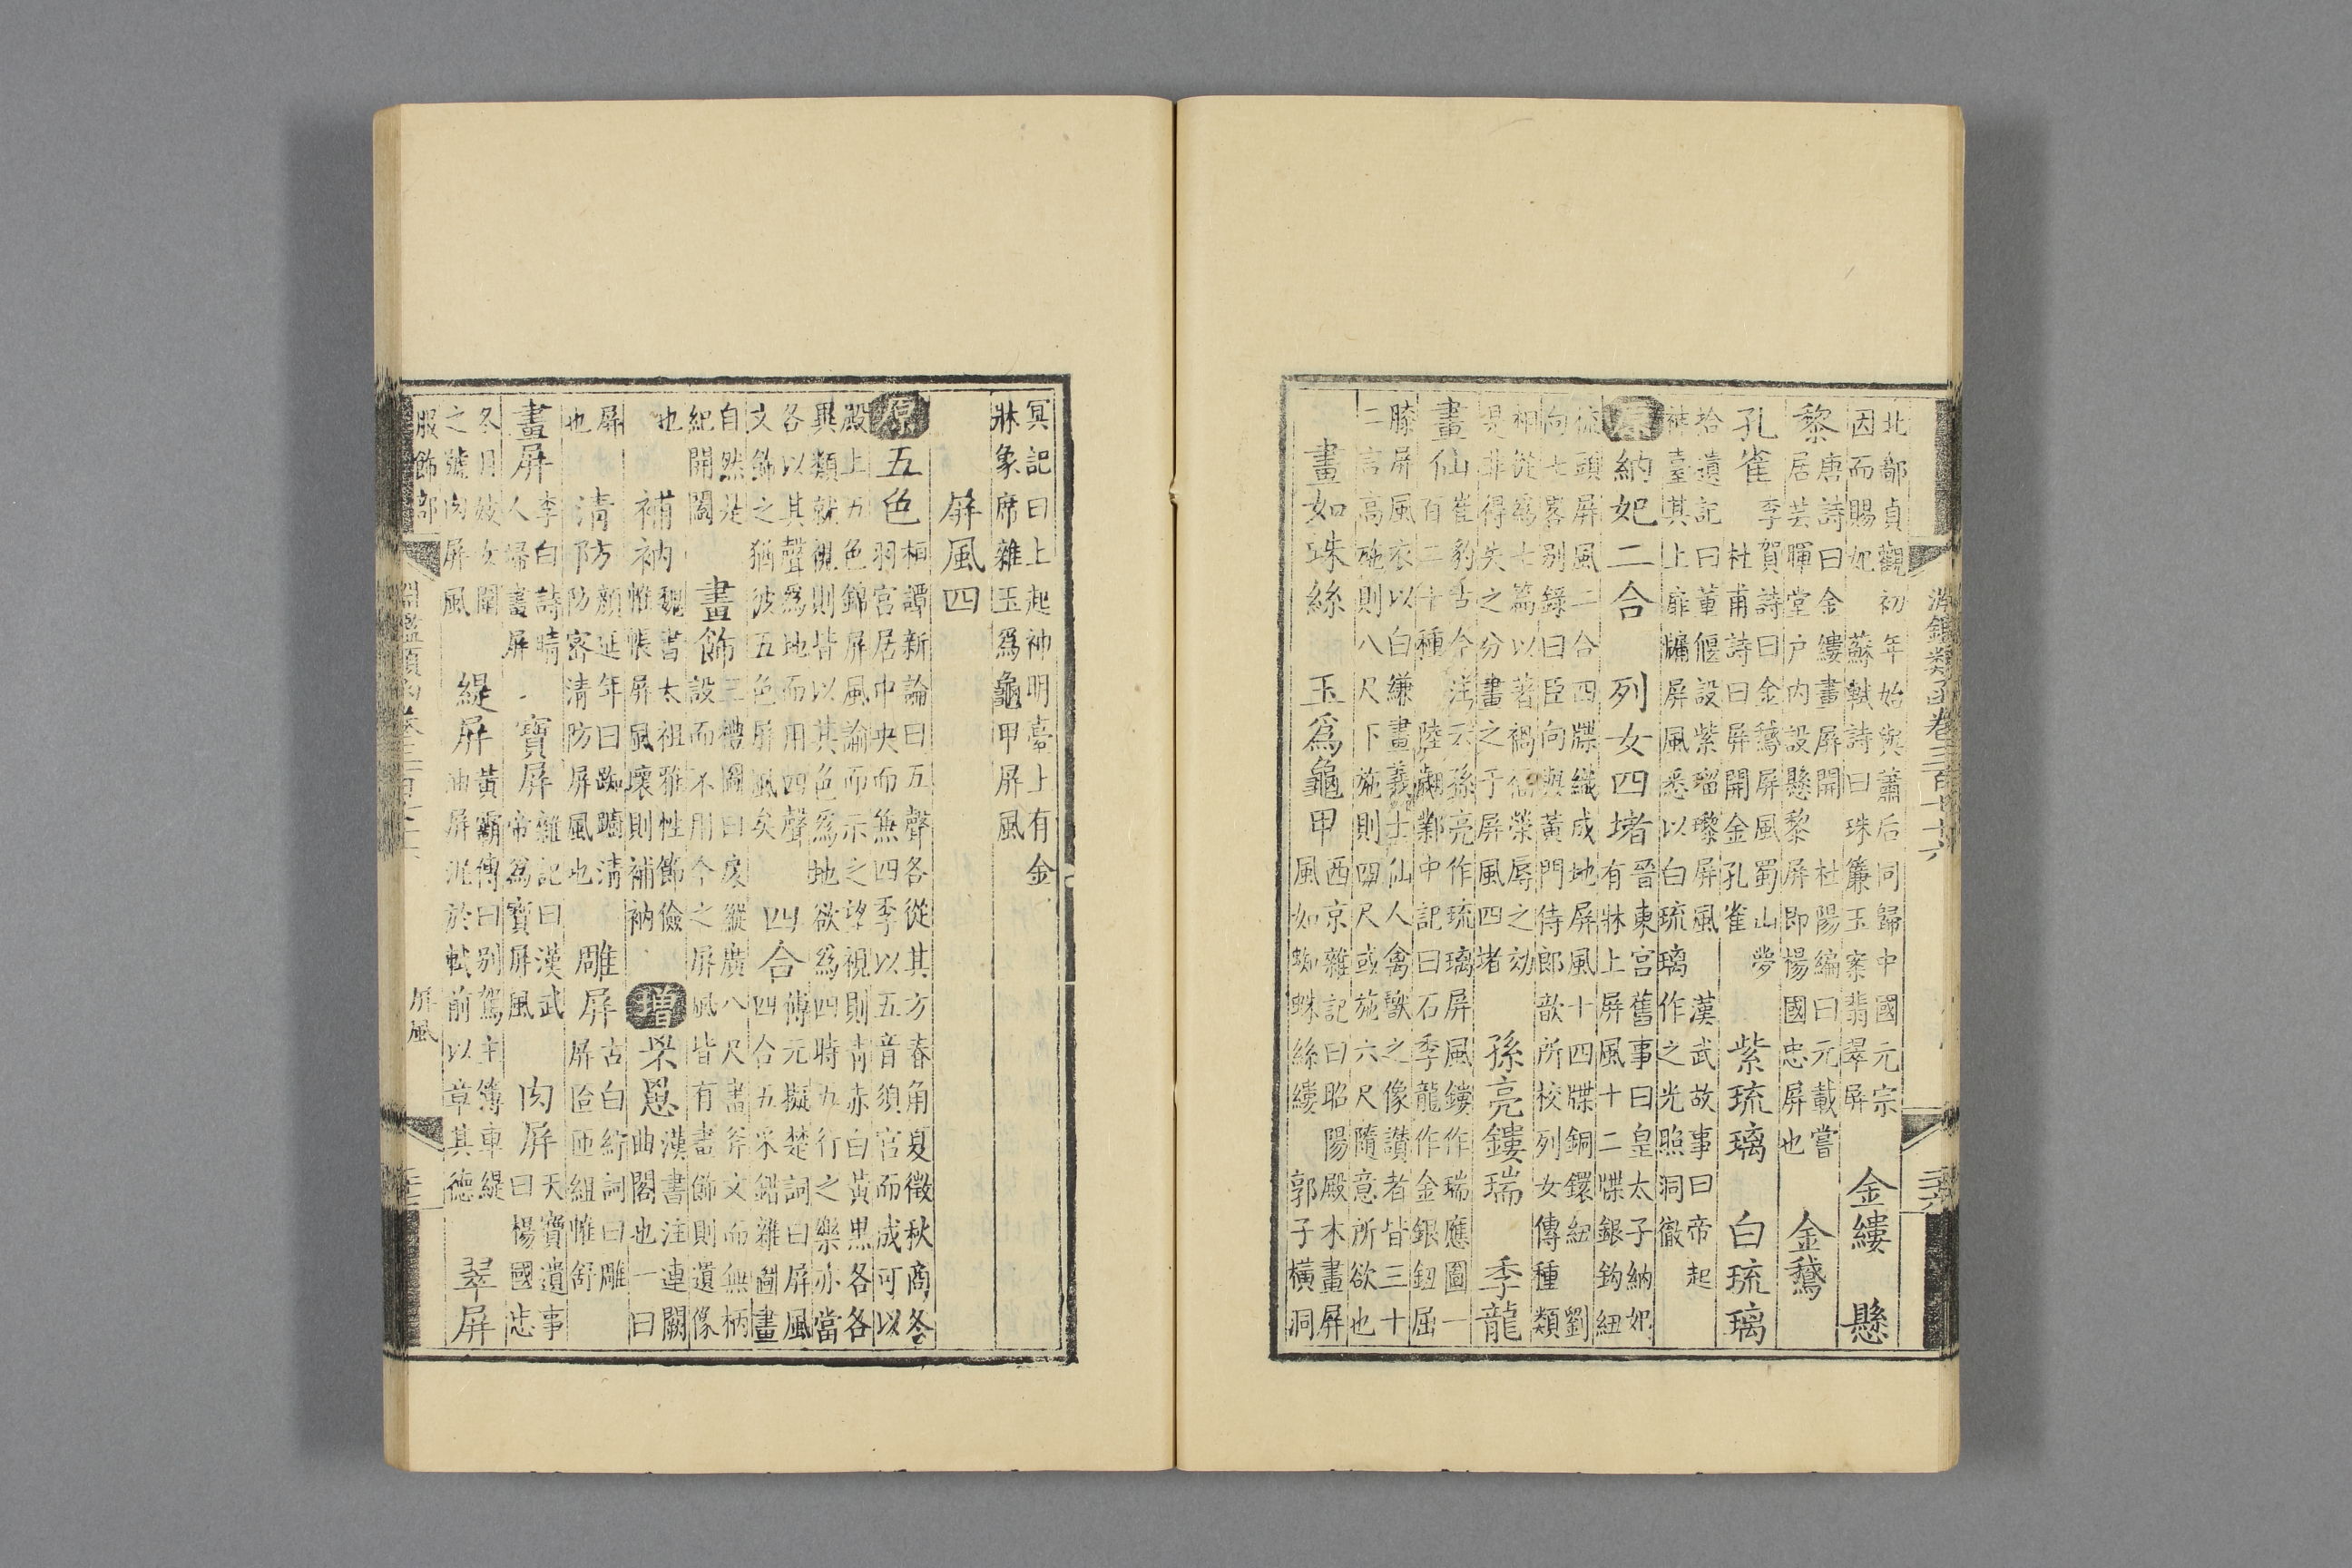 淵鑑類函卷三百七十六
北部貞觀初年始與蕭后同歸中國元宗
因而賜妃 蘇軾詩曰珠簾玉案翡翠屏
金縷 懸
黎
唐詩曰金縷畫屏開 杜陽編曰元載嘗
居芸暉堂户内設懸黎屏即楊國忠屏也
金鵞
孔雀
李賀詩曰金鵞屏風蜀山夢
杜甫詩曰屏開金孔雀
紫琉璃 白琉璃
拾遺記曰董偃設紫瑠瓈屏風 漢武故事曰帝起
神臺其上扉牖屏風悉以白琉璃作之光照洞徹
原 納妃二合 列女四堵
晉東宮舊事曰皇太子納妃
有牀上屏風十二牒銀鉤紐
梳頭屏風二合四牒織成地屏風十四牒銅鐶紐 劉
向七畧别録曰臣向與黃門侍郎歆所校列女傳種類
相從爲七篇以著禍福榮辱之効
是非得失之分畫之于屏風四堵
孫亮鏤瑞 季龍
畫仙
崔豹古今注云孫亮作琉璃屏風鏤作瑞應圖一
百二十種 陸翽鄴中記曰石季龍作金銀鈕屈
膝屏風衣以白縑畫義士仙人禽獸之像讚者皆三十
二言高施則八尺下施則四尺或施六尺隨意所欲也
畫如珠絲 玉爲龜甲
西京雜記曰昭陽殿木畫屏
風如蜘蛛絲縷 郭子橫洞
冥記曰上起神明臺上有金
牀象席雜玉爲龜甲屏風
屏風四
原 五色
桓譚新論曰五聲各從其方春角夏徵秋商冬
羽宮居中央而無四季以五音須宮而成可以
殿上五色錦屏風論而示之望視則青赤白黃黑各各
異類就視則皆以其色爲地欲爲四時五行之樂亦當
各以其聲爲地而用四聲
文飾之猶彼五色屏風矣
四合
傅元擬楚詞曰屏風
四合五采錯雜圖畫
自然是
紀開闔
畫飾
三禮圖曰扆縱廣八尺畫斧文而無柄
設而不用今之屏風皆有畫飾則遺像
也
補衲
魏書太祖雅性節儉
帷帳屏風壞則補衲
增 罘罳
漢書注連闕
曲閣也一曰
屏
也
清防
顏延年曰踟躕清
防密清防屏風也
雕屏
古白紵詞曰雕
屏匼匝組帷舒
畫屏
李白詩晴
人歸畫屏
寶屏
雜記曰漢武
帝爲寶屏風
肉屏
天寶遺事
曰楊國忠
冬月妓女圍
之號肉屏風
緹屏
黃霸傳曰别駕主簿車緹
油屏泥於軾前以章其德
翠屏
服飾部
淵鑑類函卷三百七十六
屏風